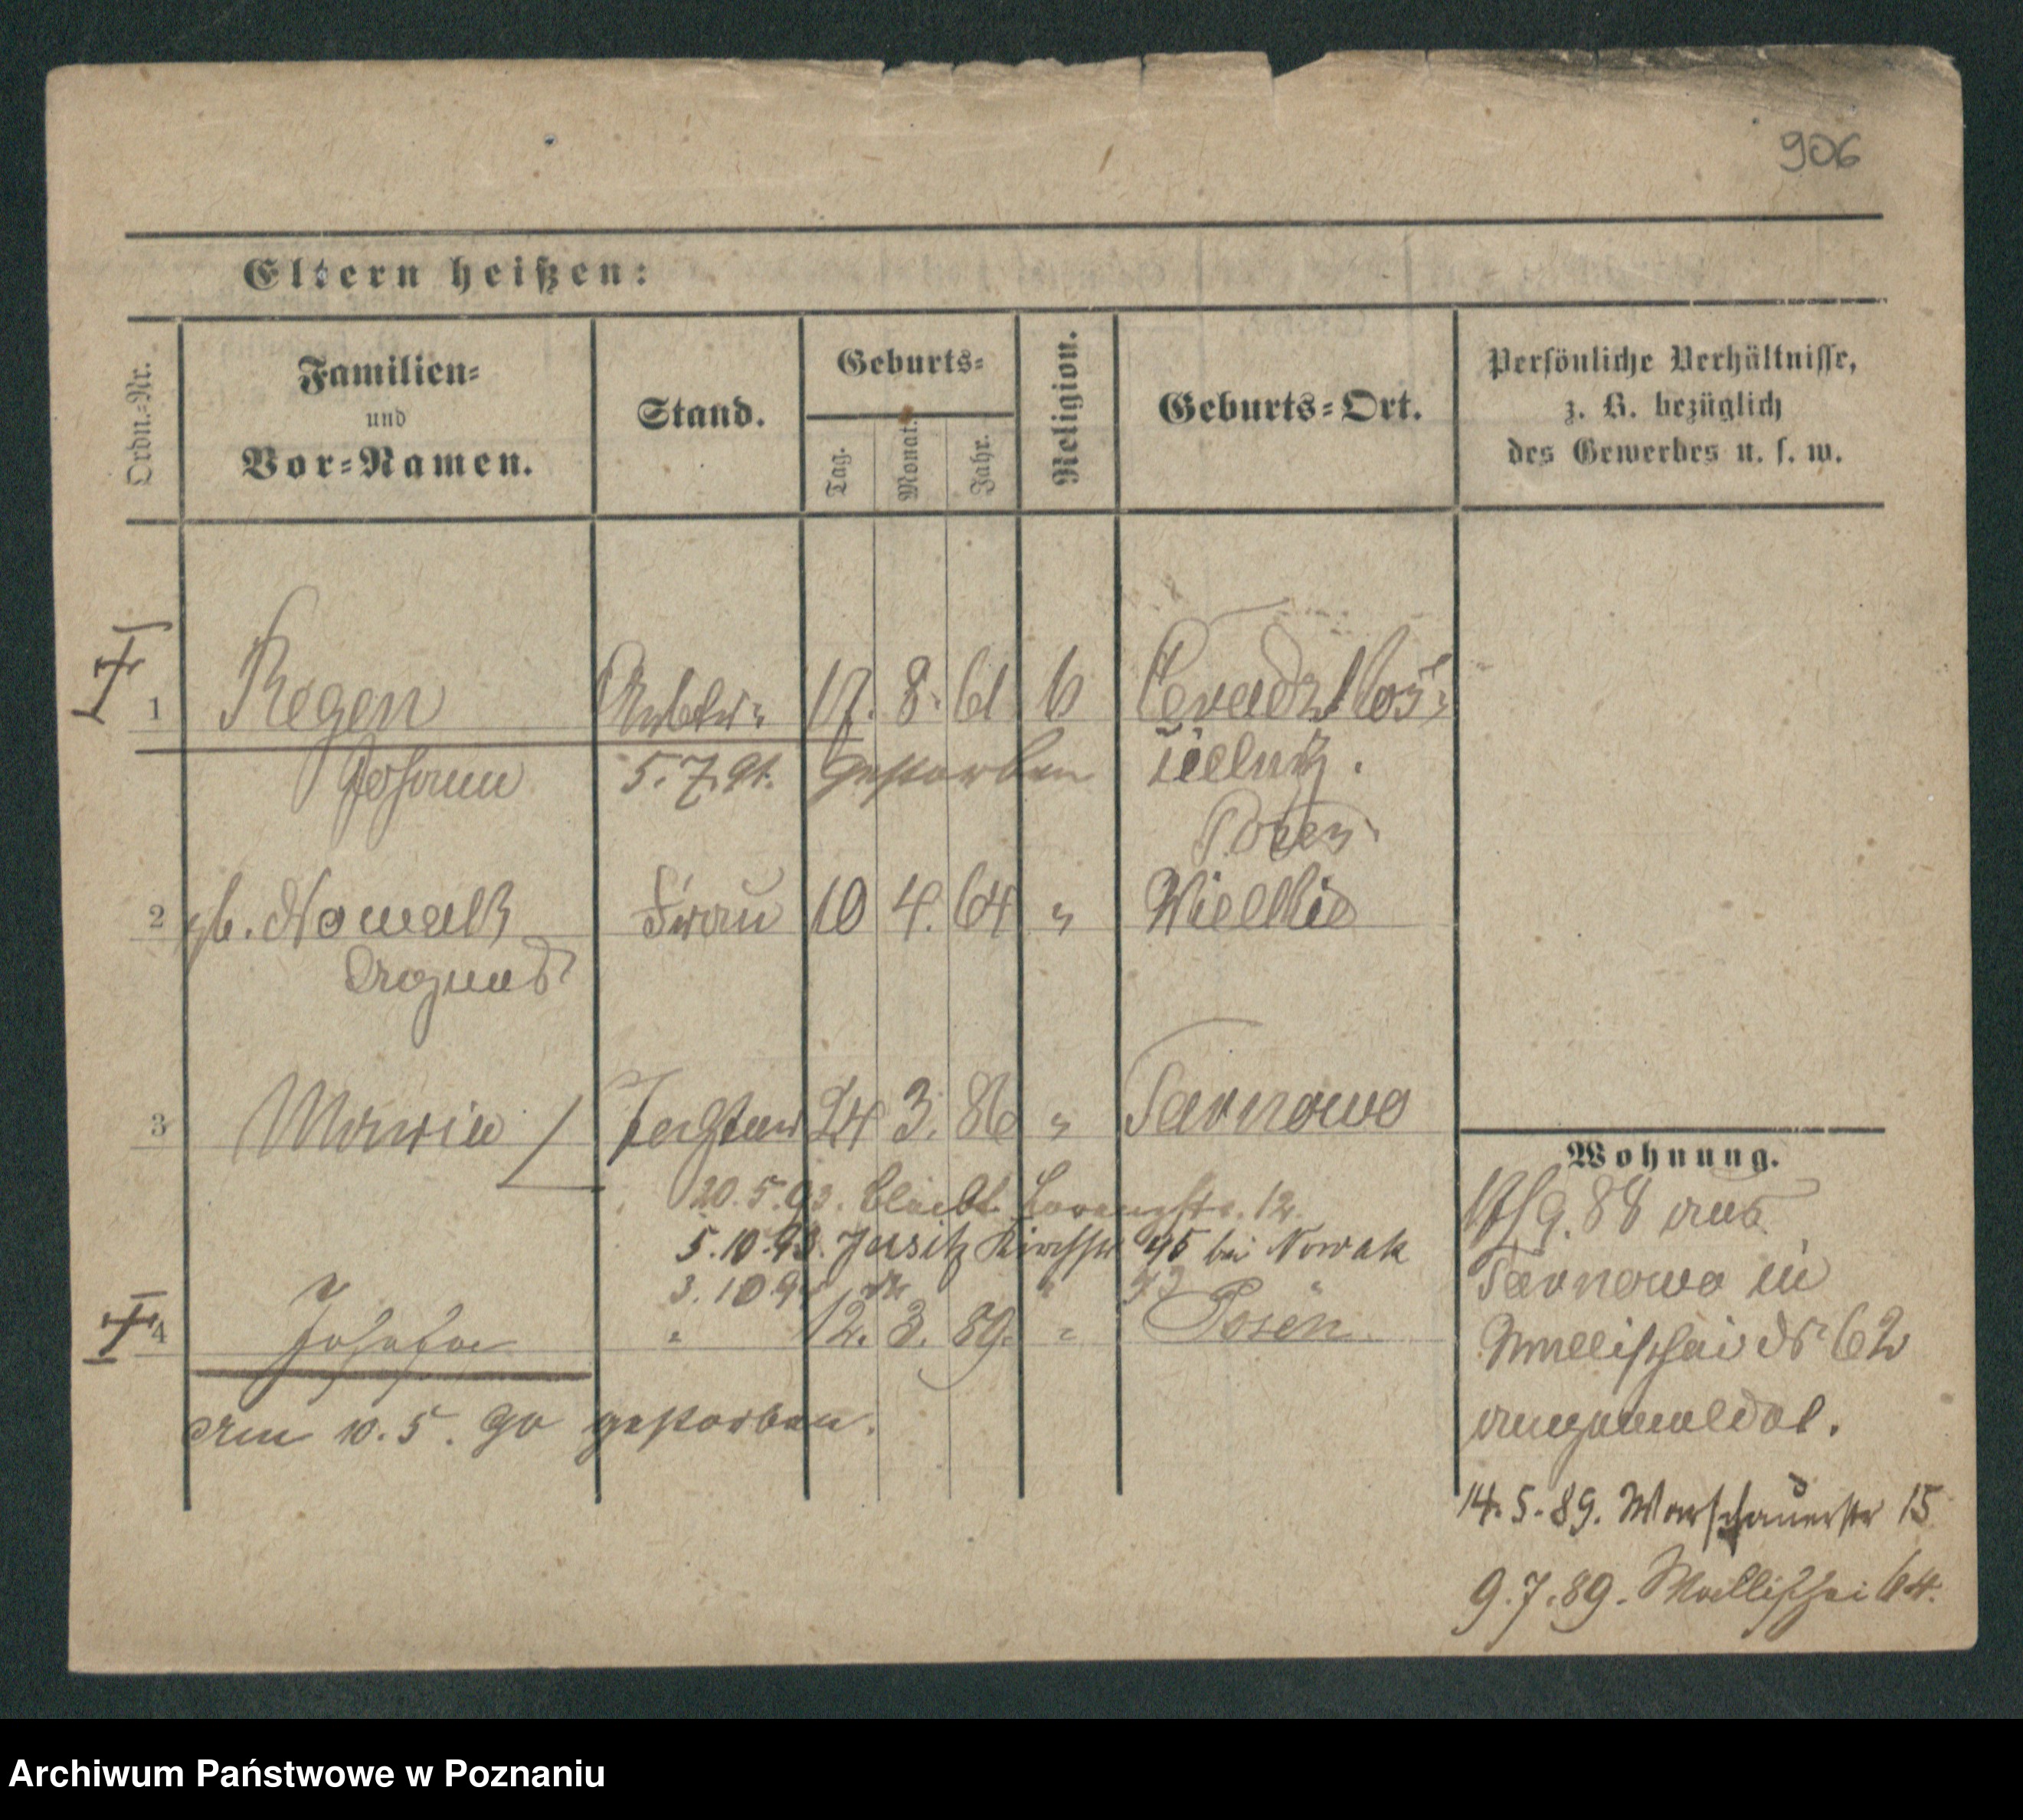 906
Eltern heißen:
Ordn.-Nr.
Familien-
und
Vor-Namen.
Stand.
Geburts-
Tag.
Monat.
Jahr.
Religion.
Geburts-Ort.
Persönliche Verhältnisse,
z. B. bezüglich
des Gewerbes u. s. w.
1 Regen 17. 8. 61
Johann 5. 7. 91. gestorben
Posen
2 gb. Nowak Frau 10 4. 64 "
3 Maria Tochter 24 3. 86 " Tarnowo
Wohnung.
20. 5. 93. bleibt 12.
5. 10. 93. Jersitz Kirchstr 45 bei Nowak
3. 10. 94 " 43
4 Josefa " 12. 3. 89. " Posen
am 10. 5. 90 gestorben.
88 aus
Tarnowo in
Wallischei No 62
angemeldet.
14. 5. 89. Warschauerstr 15
9. 7. 89. Wallischei 64.
Archiwum Państwowe w Poznaniu